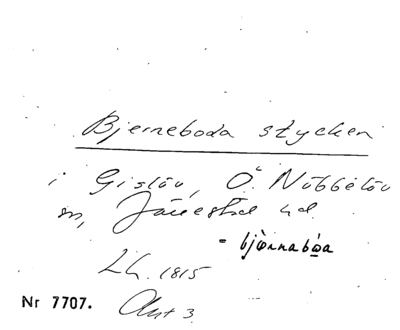 Bjerneboda stycken
i Gislöv, Ö. Nöbbelöv
sn, Järrestad hd.
- björnabọa
Lh. 1815
Nr 7707. Akt 3